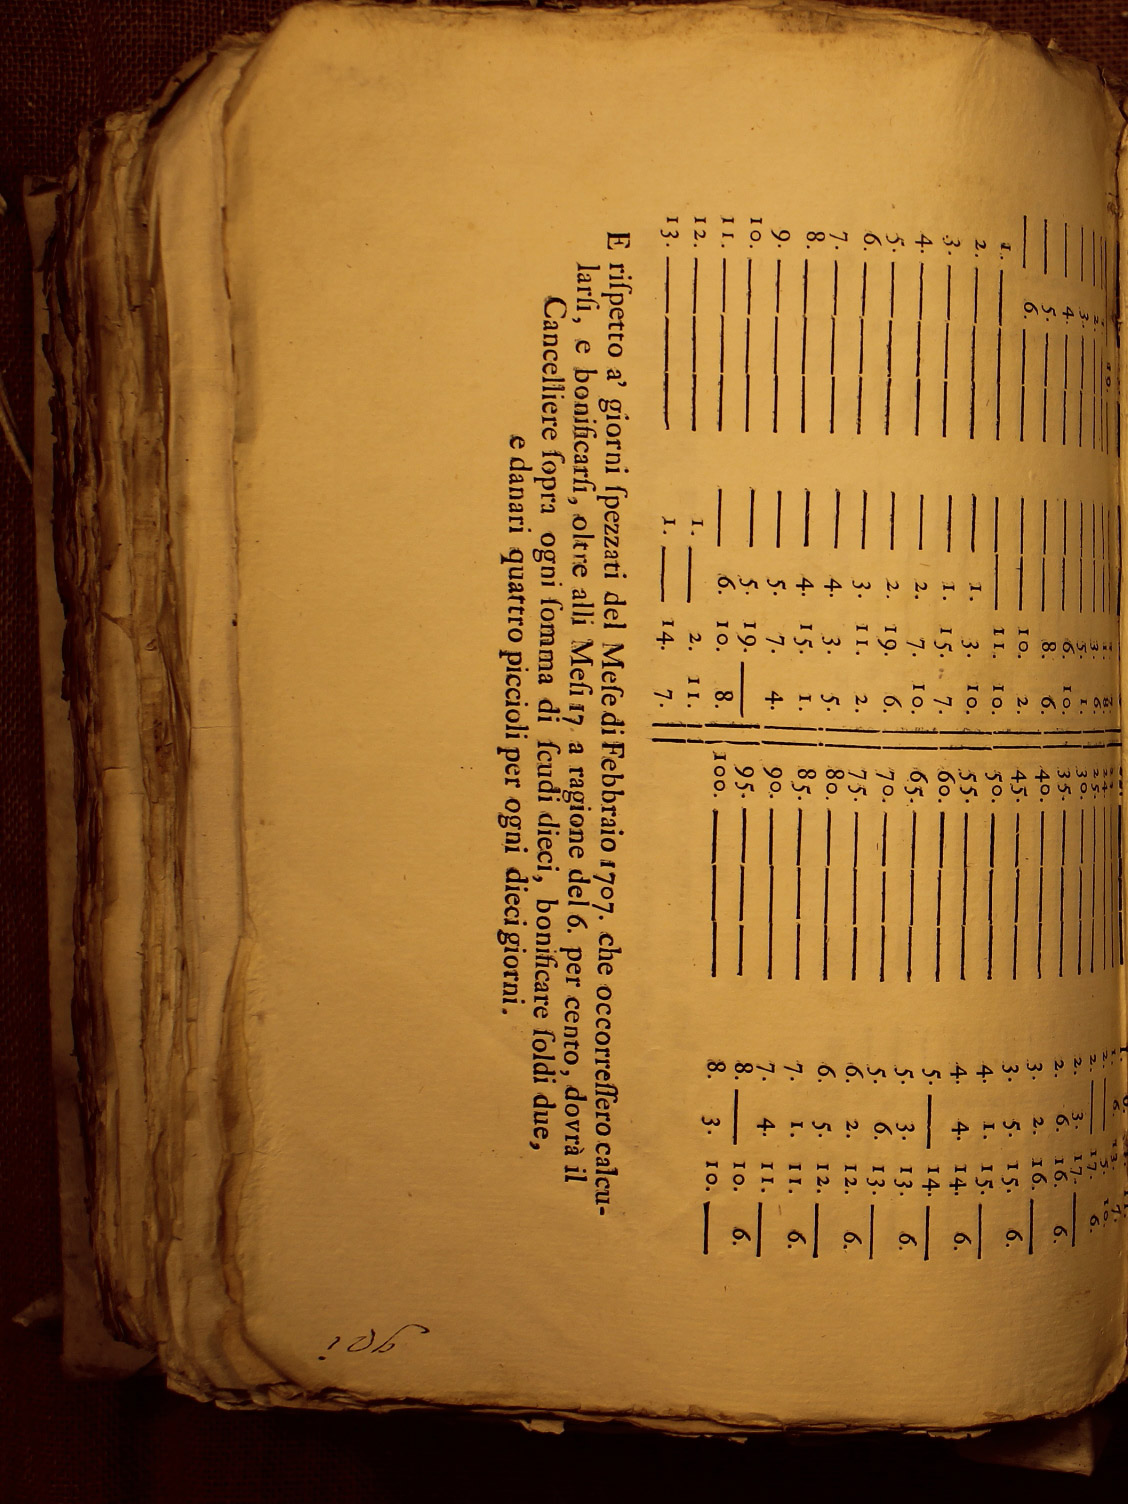 — 2. — 3. 6. 25. — 2. — 17. 6.
— 3. — 5. 1. 30. — 2. 3. 17. —
— 4. — 6. 10. 35. — 2. 6. 16. 6.
— 5. — 8. 6. 40. — 3. 2. 16. —
— 6. — 10. 2. 45. — 3. 5. 15. 6.
1. — 11. 10. 50. — 4. 1. 15. —
2. — 1. 3. 10. 55. — 4. 4. 14. 6.
3. — 1. 15. 7. 60. — 5. — 14. —
4. — 2. 7. 10. 65. — 5. 3. 13. 6.
5. — 2. 19. 6. 70. — 5. 6. 13. —
6. — 3. 11. 2. 75. — 6. 2. 12. 6.
7. — 4. 3. 5. 80. — 6. 5. 12. —
8. — 4. 15. 1. 85. — 7. 1. 11. 6.
9. — 5. 7. 4. 90. — 7. 4. 11. —
10. — 5. 19. — 95. — 8. — 10. 6.
11. — 6. 10. 8. 100. — 8. 3. 10. —
12. — 1. — 2. 11.
13. — 1. — 14. 7.
E riſpetto a' giorni ſpezzati del Meſe di Febbraio 1707. che occorreſſero calcu-
larſi, e bonificarſi, oltre alli Meſi 17 a ragione del 6. per cento, dovrà il
Cancelliere ſopra ogni ſomma di ſcudi dieci, bonificare ſoldi due,
e danari quattro piccioli per ogni dieci giorni.